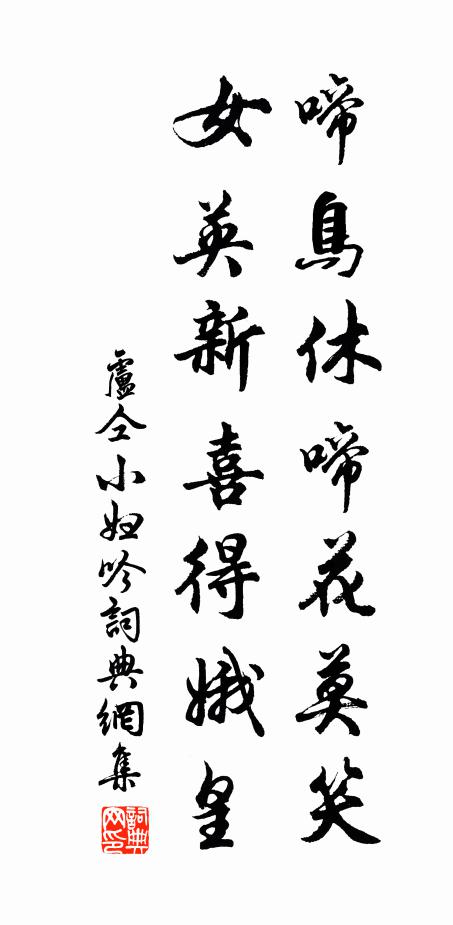 啼鳥休啼花莫笑
女英新喜得娥皇
盧仝小婦吟詞典網集
詞典网印